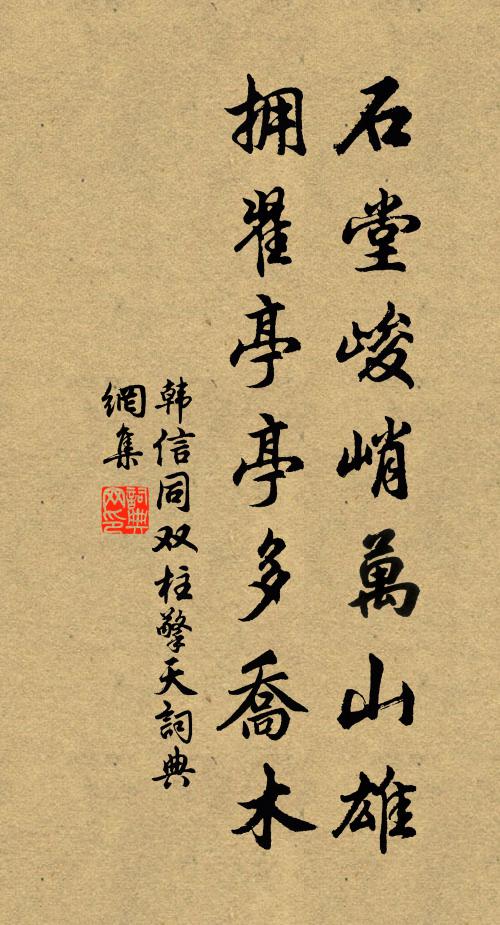 石堂峻峭萬山雄
拥翠亭亭多喬木
韩信同双柱擎天詞典
網集
詞典
网印